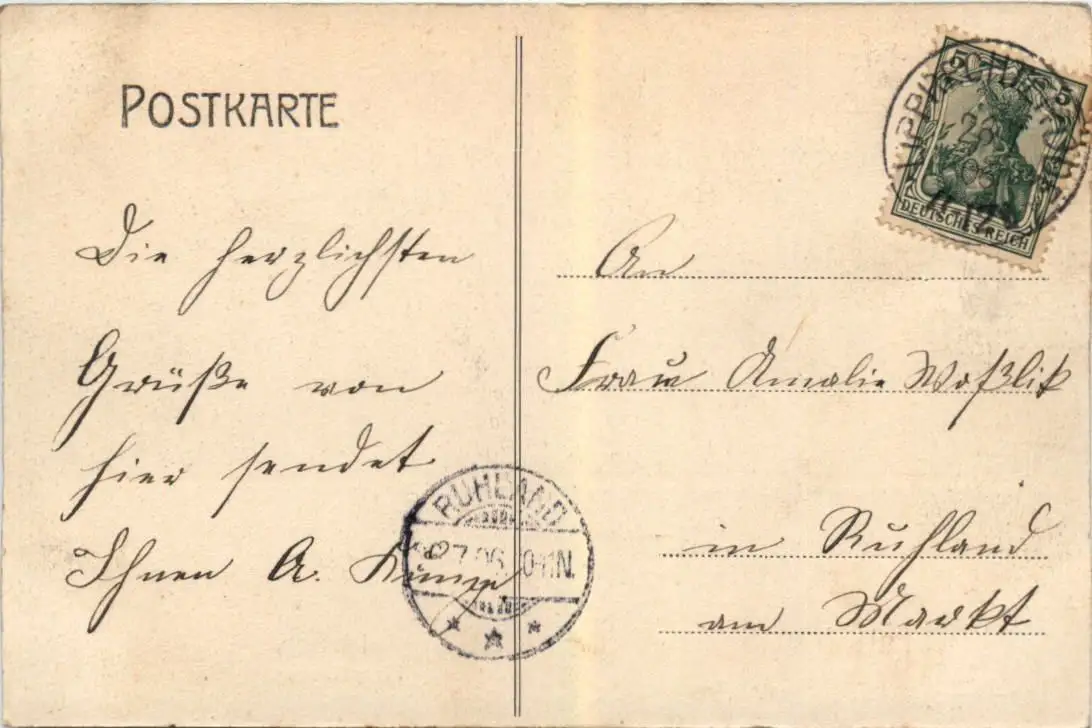 POSTKARTE
Die herzlichsten
Grüße von
hier sendet
Ihnen A.
An
Frau Amalie Woßlik
in Ruhland
am Markt
5 5
DEUTSCHES REICH
RUHLAND
27.7.06. 10-11N.